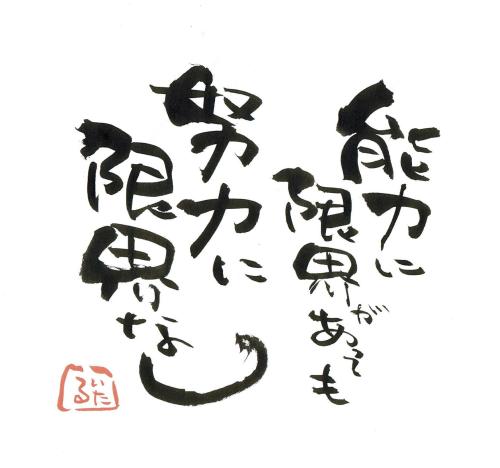 能力に
限界があっても
努力に
限界なし
いたる